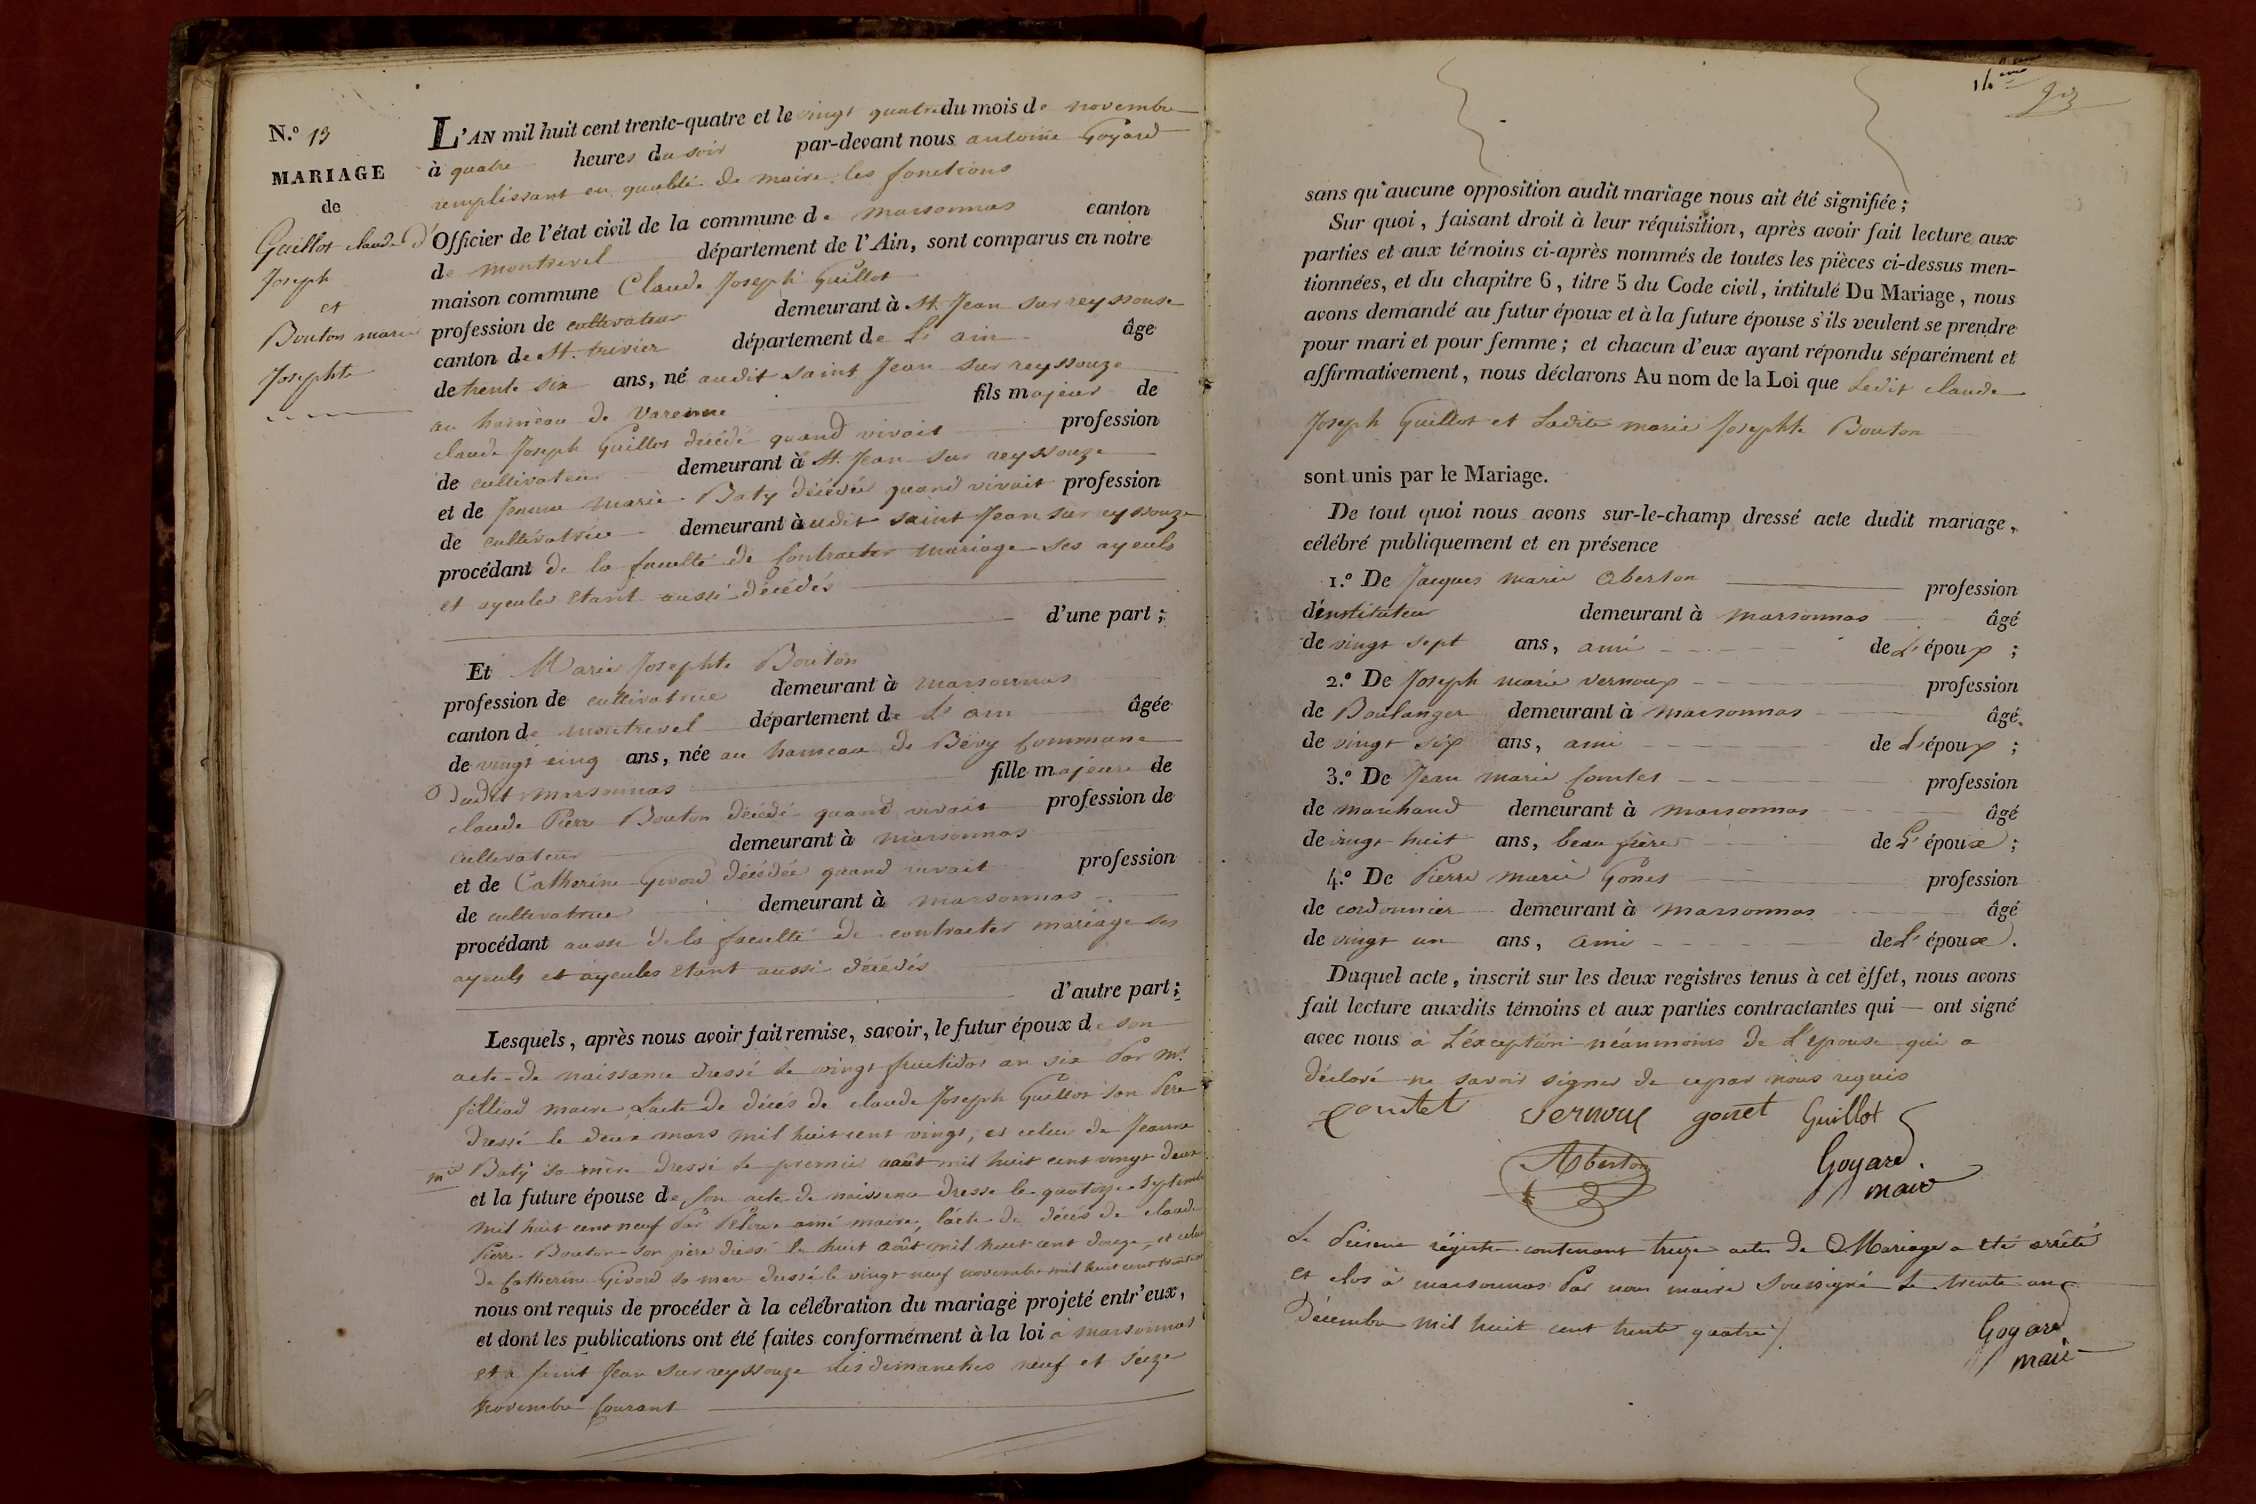 N.º 13
MARIAGE
de
Guillot claude
Joseph
et
Bouton marie
Josephte
L'AN mil huit cent trente-quatre et le vingt quatre du mois de novembre
à quatre heures du soir par-devant nous antoine Goyard
remplissant en qualité de maire les fonctions
d'Officier de l'état civil de la commune de marsonnas canton
de montrevel département de l'Ain, sont comparus en notre
maison commune Claude Joseph Guillot
profession de cultivateur demeurant à St. Jean sur reyssouse
canton de St. trivier département de L'ain âge
de trente six ans, né audit saint Jean sur reyssouze
au hameau de Varenne fils majeur de
claude Joseph Guillot décédé quand vivait profession
de cultivateur demeurant à St. Jean sur reyssouze
et de Jeanne marie Baty décédée quand vivait profession
de cultivatrice demeurant audit saint Jean sur reyssouze
procédant de la faculté de Contracter mariage ses ayeuls
et ayeules etant aussi décédés
d'une part ;
Et Marie Josephte Bouton
profession de cultivatrice demeurant à marsonnas
canton de montrevel département de L'ain âgée
de vingt cinq ans, née au hameau de Bévy Commune
dudit marsonnas fille majeure de
claude Pierre Bouton décédé quand vivait profession de
cultivateur demeurant à marsonnas
et de Catherine Givord décédée quand vivait profession
de cultivatrice demeurant à marsonnas
procédant aussi de la faculté de contracter mariage ses
ayeuls et ayeules etant aussi décédés
d'autre part ;
Lesquels, après nous avoir fait remise, savoir, le futur époux de son
acte de naissance dressé le vingt fructidor an six Par Mr.
filliad maire, L'acte de décés de claude Joseph Guillot son Pere
Dressé le deux mars mil huit cent vingt, et celui de Jeanne
mie Baty sa mère dressé le premier août mil huit cent vingt deux
et la future épouse de son acte de naissance dressé le quatorze Septembre
mil huit cent neuf Par ainé maire, l'acte de décés de claude
Pierre Bouton son père dressé le huit août mil huit cent douze, et celui
de Catherine Givord sa mere dressé le vingt neuf novembre mil huit cent
nous ont requis de procéder à la célébration du mariage projeté entr'eux,
et dont les publications ont été faites conformément à la loi à marsonnas
et à saint Jean sur reyssouze les dimanches neuf et seize
novembre Courant
14eme
sans qu'aucune opposition audit mariage nous ait été signifiée ;
Sur quoi, faisant droit à leur réquisition, après avoir fait lecture aux
parties et aux témoins ci-après nommés de toutes les pièces ci-dessus men-
tionnées, et du chapitre 6, titre 5 du Code civil, intitulé Du Mariage, nous
avons demandé au futur époux et à la future épouse s'ils veulent se prendre
pour mari et pour femme ; et chacun d'eux ayant répondu séparément et
affirmativement, nous déclarons Au nom de la Loi que Ledit claude
Joseph Guillot et Ladite marie Josephte Bouton
sont unis par le Mariage.
De tout quoi nous avons sur-le-champ dressé acte dudit mariage,
célébré publiquement et en présence
1.º De Jacques marie Aberton profession
d'instituteur demeurant à marsonnas âgé
de vingt sept ans, ami de L'époux ;
2.º De Joseph marie vernoux profession
de Boulanger demeurant à marsonnas âgé
de vingt six ans, ami de L'époux ;
3.º De Jean marie Contet profession
de marchand demeurant à marsonnas âgé
de vingt huit ans, beau frère de L'épouse ;
4.º De Pierre marie Gonet profession
de cordonnier demeurant à marsonnas âgé
de vingt un ans, ami de L'épouse.
Duquel acte, inscrit sur les deux registres tenus à cet effet, nous avons
fait lecture auxdits témoins et aux parties contractantes qui — ont signé
avec nous à L'exception néanmoins de L'épouse qui a
déclaré ne savoir signer de ce par nous requis
Contet vernoux gonet Guillot
Aberton Goyard
maire
Le Présent régistre contenant treize actes de Mariage a été arrêté
et clos à marsonnas Par nous maire soussigné Le trente un
Décembre mil huit cent trente quatre /.
Goyard
maire